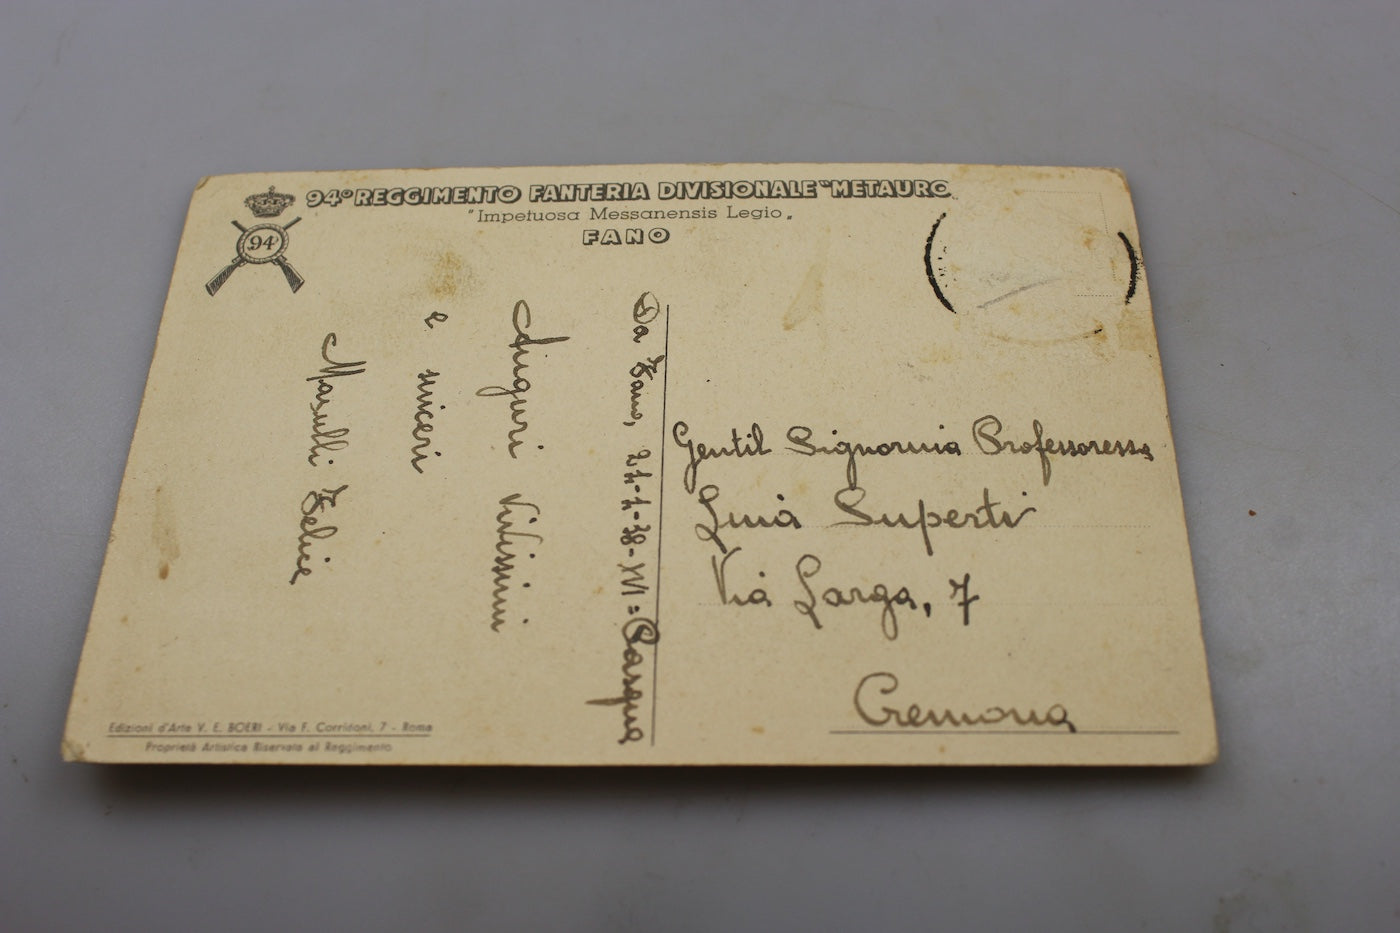 94º REGGIMENTO FANTERIA DIVISIONALE "METAURO
"Impetuosa Messanensis Legio„
FANO
94º
Da Fano, 21-4-38-XVI = Pasqua
Auguri Vivissimi
e sinceri
Masulli Felice
Gentil Signorina Professoressa
Luià Superti
Via Larga, 7
Cremona
Edizioni d'Arte V. E. BOERI - Via F. Corridoni, 7 - Roma
Proprietà Artistica Riservata al Reggimento